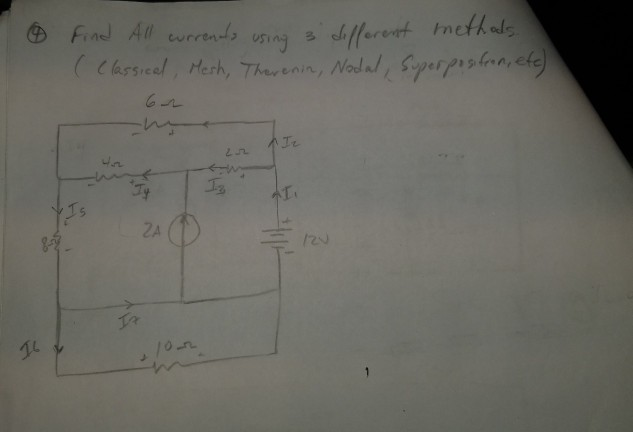 ④ Find All currents using 3 different methods
( Classical, Mesh, Thevenin, Nodal, Superposition, etc)
6Ω
- +
I2
4Ω
2Ω
- +
I4
I3
- +
I5
I1
+
8Ω
-
2A
+
12V
-
I7
I6
+ 10Ω -
1